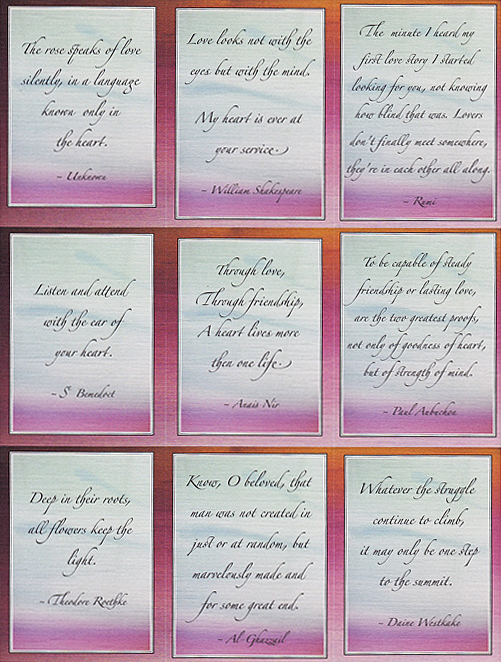 The rose speaks of love
silently, in a language
known only in
the heart.
~ Unknown
Love looks not with the
eyes but with the mind.
My heart is ever at
your service.
~ William Shakespeare
The minute I heard my
first love story I started
looking for you, not knowing
how blind that was. Lovers
don't finally meet somewhere,
they're in each other all along.
~ Rumi
Listen and attend
with the ear of
your heart.
~ St Bemedoct
Through love,
Through friendship,
A heart lives more
then one life.
~ Anais Nir
To be capable of steady
friendship or lasting love,
are the two greatest proofs,
not only of goodness of heart,
but of strength of mind.
~ Paul Aubuchon
Deep in their roots,
all flowers keep the
light.
~ Theodore Roethke
Know, O beloved, that
man was not created in
just or at random, but
marvelously made and
for some great end.
~ Al-Ghazzail
Whatever the struggle
continue to climb,
it may only be one step
to the summit.
~ Daine Westkake